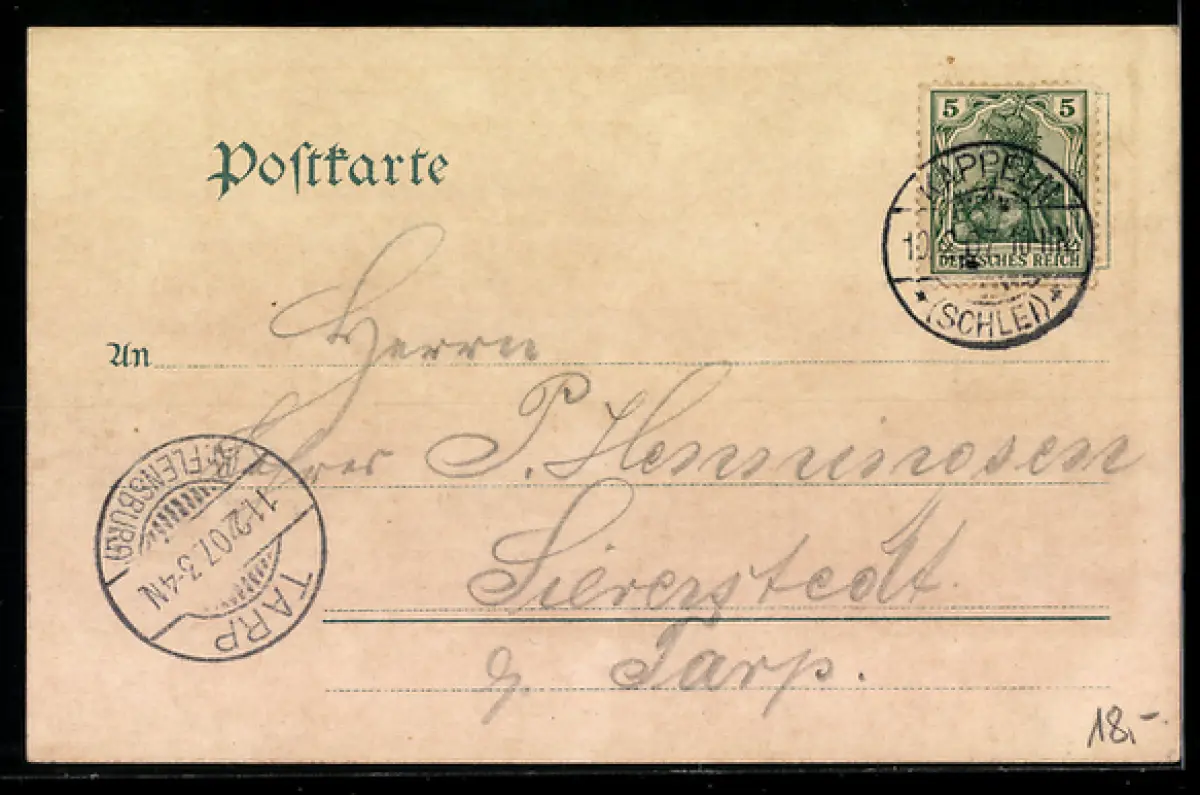 Postkarte
5 5
DEUTSCHES REICH
KAPPELN
10. 2. 07. 10-11
* (SCHLEI) *
An Herrn
P. Hennningsen
Sieverstedt
b. Tarp.
TARP
11.2.07. 3-4N
(B. FLENSBURG)
18,-